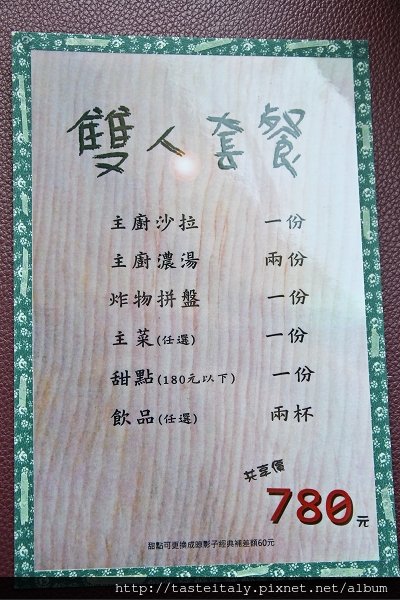 雙人套餐
主廚沙拉 一份
主廚濃湯 兩份
炸物拼盤 一份
主菜(任選) 一份
甜點(180元以下) 一份
飲品(任選) 兩杯
共享價
780元
甜點可更換成聽影子經典補差額60元
http://tasteitaly.pixnet.net/album